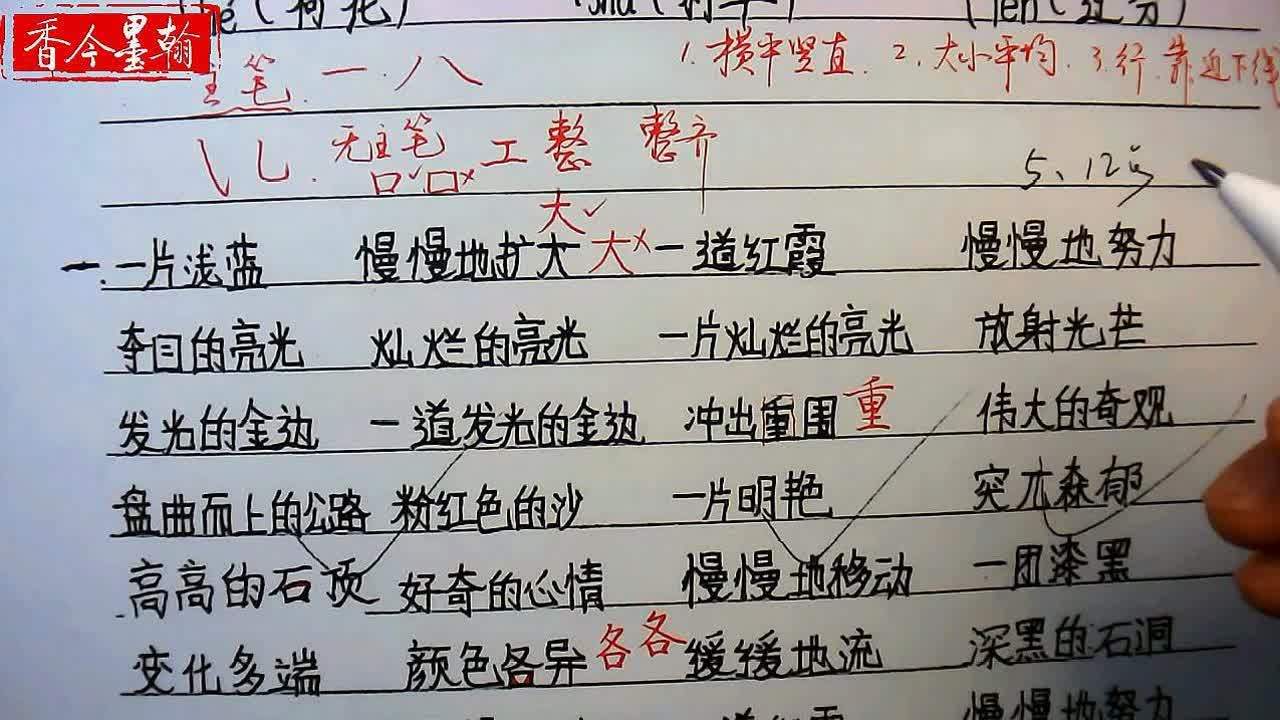 香今墨翰
hé(荷花) (
主笔 一 八 1.横平竖直. 2.大小平均. 3.行.靠近下线
无主笔 工 整 整齐
口✓口× 5、12号
大✓
一片浅蓝 慢慢地扩大 大× 一道红霞 慢慢地努力
夺目的亮光 灿烂的亮光 一片灿烂的亮光 放射光芒
发光的金边 一道发光的金边 冲出重围 重 伟大的奇观
盘曲而上的公路 粉红色的沙 一片明艳 突兀森郁
高高的石顶 好奇的心情 慢慢地移动 一团漆黑
变化多端 颜色各异 各各 缓缓地流 深黑的石洞
慢慢地努力